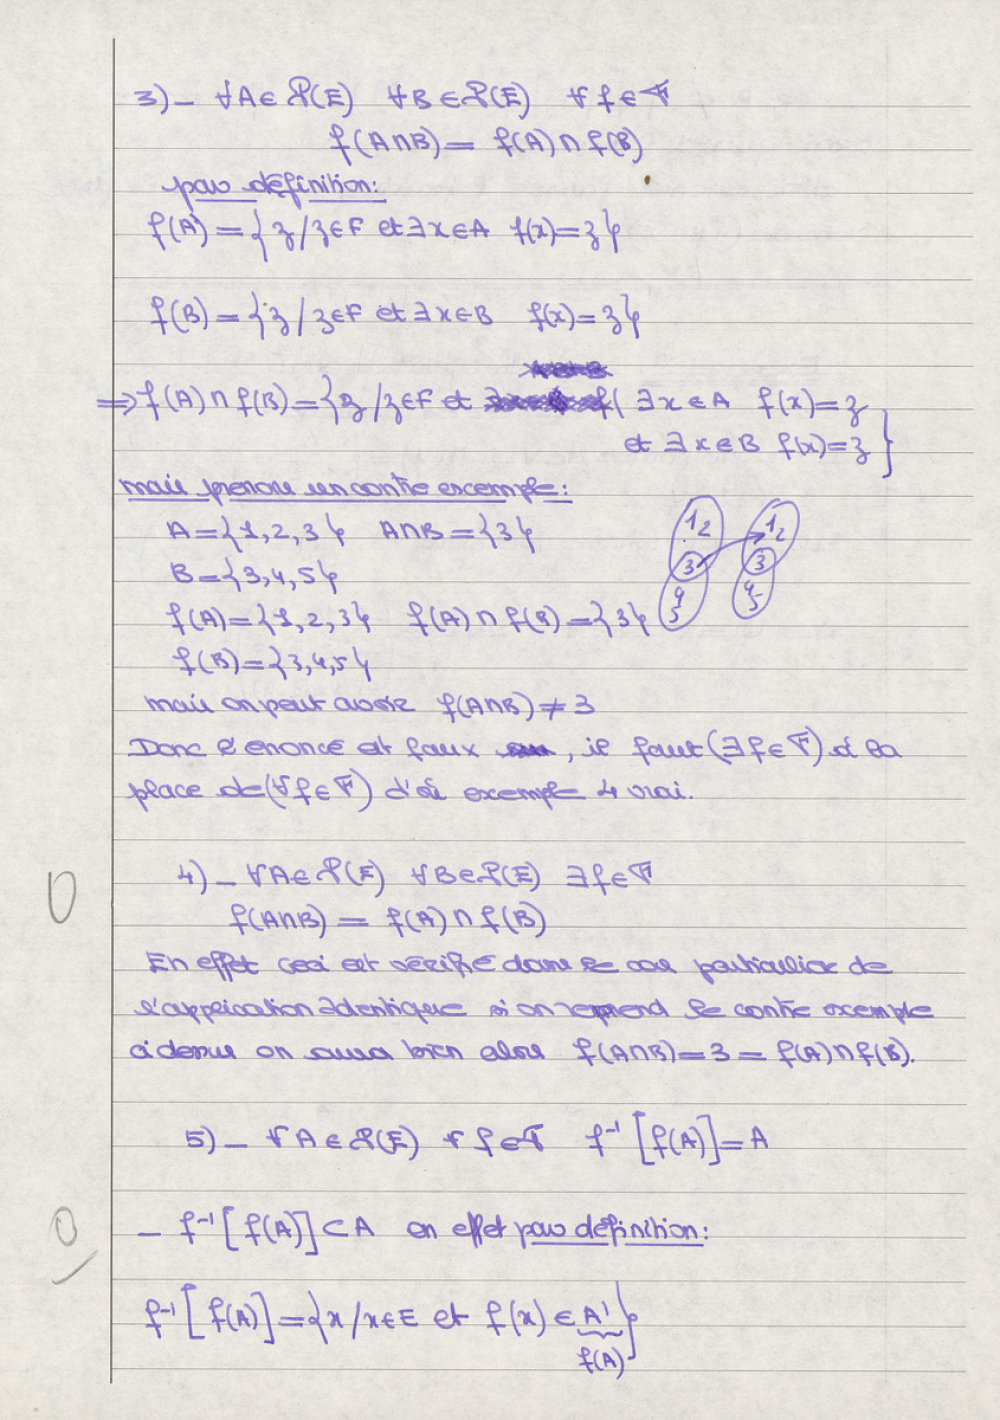 3)_ ∀A∈𝒫(E) ∀B∈𝒫(E) ∀f∈𝓕
f(A∩B)= f(A)∩f(B)
par définition:
f(A)={z/z∈F et ∃x∈A f(x)=z}
f(B)={z/z∈F et ∃x∈B f(x)=z}
⇒f(A)∩f(B)={z/z∈F et ( ∃x∈A f(x)=z
et ∃x∈B f(x)=z}
mais prenons un contre exemple:
A={1,2,3} A∩B={3}
B={3,4,5}
f(A)={1,2,3} f(A)∩f(B)={3}
f(B)={3,4,5}
1 2 3 4 5
1 2 3 4 5
mais on peut avoir f(A∩B)≠3
Donc l'enoncé est faux, il faut (∃f∈𝓕) à la
place de (∀f∈𝓕) d'où exemple 4 vrai.
4)_ ∀A∈𝒫(E) ∀B∈𝒫(E) ∃f∈𝓕
0
f(A∩B) = f(A)∩f(B)
En effet ceci est vérifié dans le cas particulier de
l'application identique si on reprend le contre exemple
cidessus on aura bien alors f(A∩B)=3=f(A)∩f(B).
5)_ ∀A∈𝒫(E) ∀f∈𝓕 f⁻¹[f(A)]=A
0
_ f⁻¹[f(A)]⊂A en effet par définition:
f⁻¹[f(A)]={x/x∈E et f(x)∈A'}
f(A)